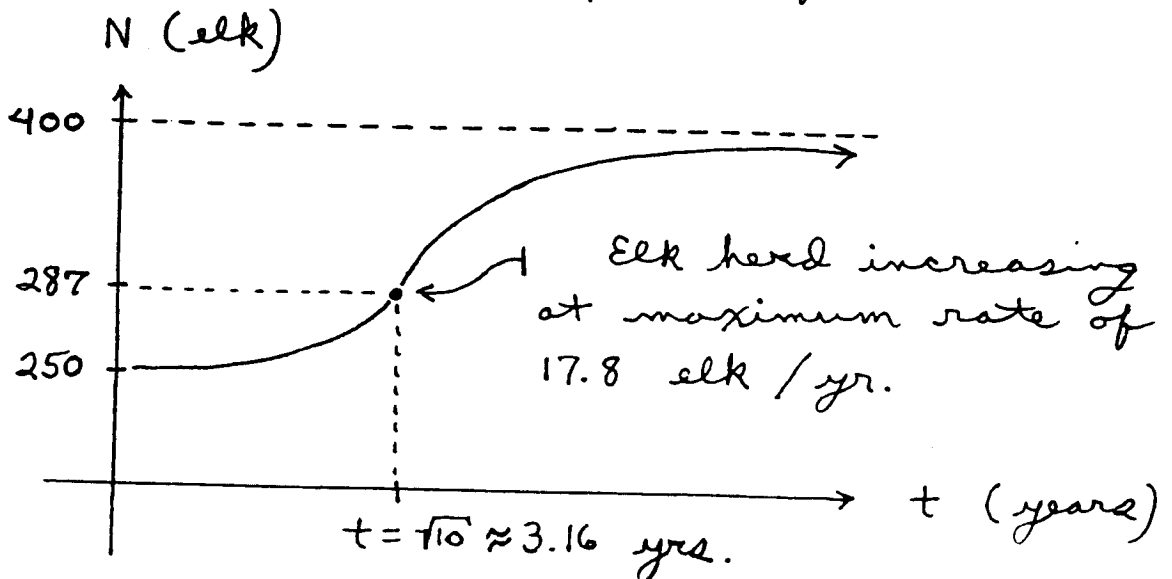 N (elk)
400
287
250
Elk herd increasing
at maximum rate of
17.8 elk / yr.
t = √10 ≈ 3.16 yrs.
t (years)